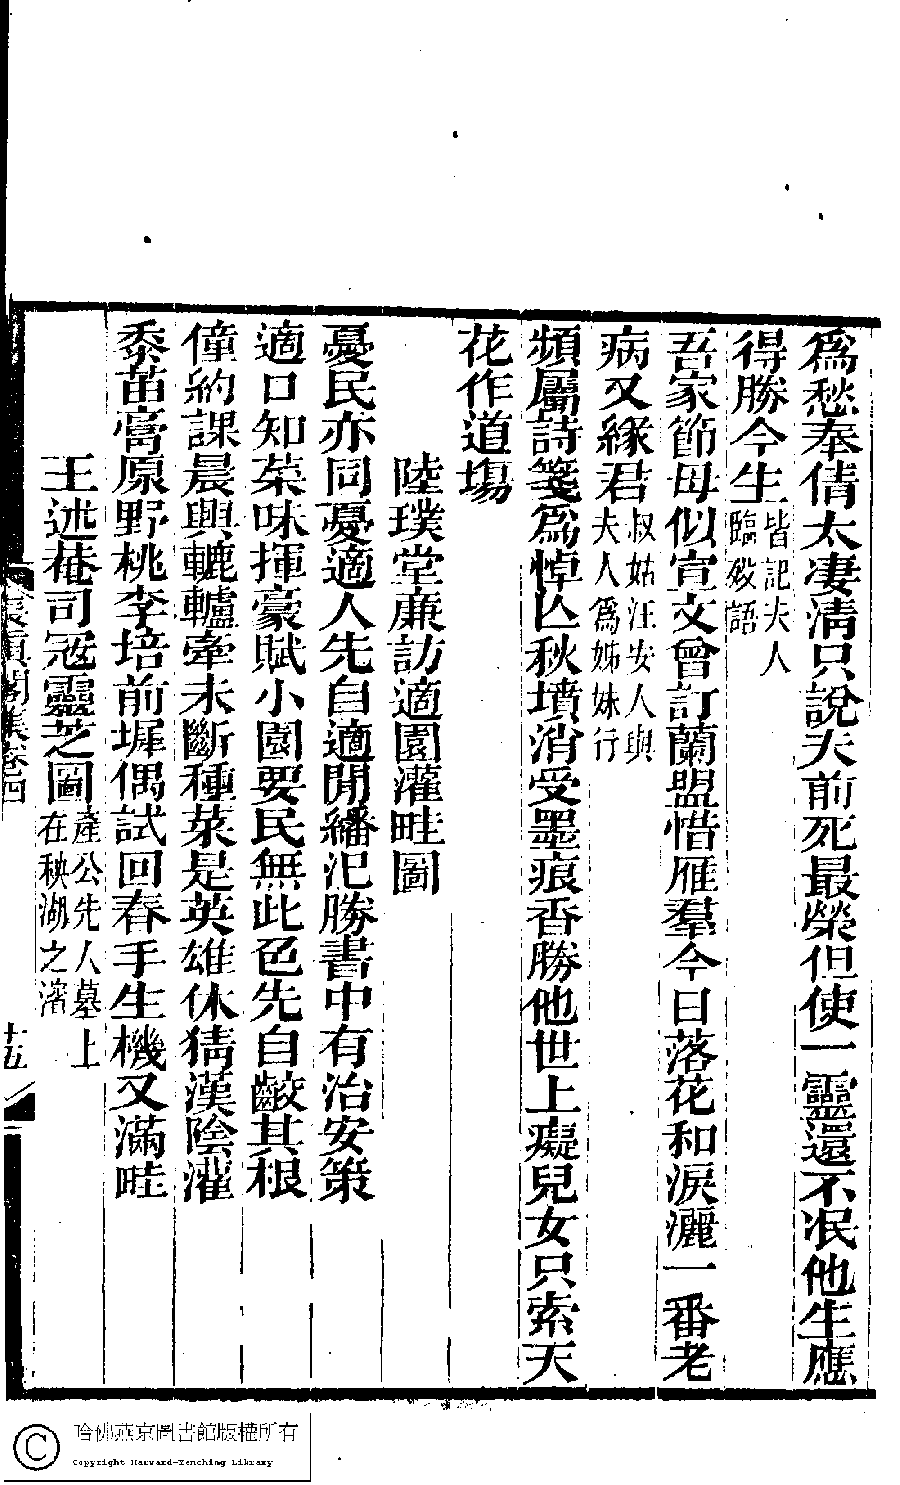 爲愁奉倩太凄淸只說夫前死最榮但使一靈還不泯他生應
得勝今生皆記夫人
臨歿語
吾家節母似宣文曾訂蘭盟惜雁羣今日落花和淚灑一番老
病又緣君叔姑汪安人與
夫人爲姊妹行
頻屬詩箋爲悼亾秋墳消受墨痕香勝他世上癡兒女只索天
花作道塲
陸璞堂廉訪適園灌畦圖
憂民亦同憂適人先自適閒繙氾勝書中有治安策
適口知菜味揮豪賦小園要民無此色先自齩其根
僮約課晨興轆轤牽未斷種菜是英雄休猜漢陰灌
黍苗膏原野桃李培前墀偶試回春手生機又滿畦
王述菴司冦靈芝圖產公先人墓上
在秧湖之濱
集卷四
十五
哈佛燕京圖書館版權所有
Copyright Harvard-Yenching Library